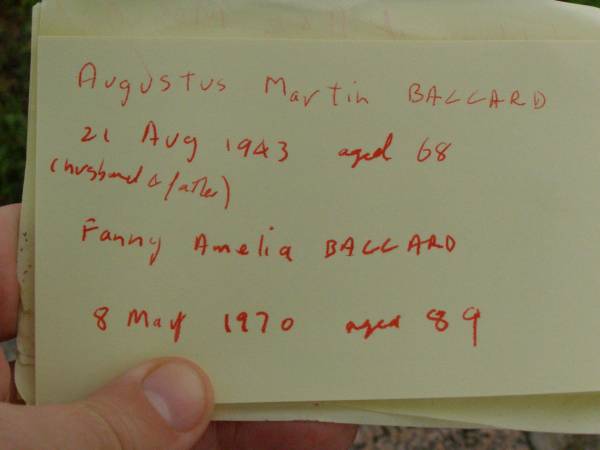 Augustus Martin BALLARD
21 Aug 1943 aged 68
(husband & father)
Fanny Amelia BALLARD
8 May 1970 aged 89